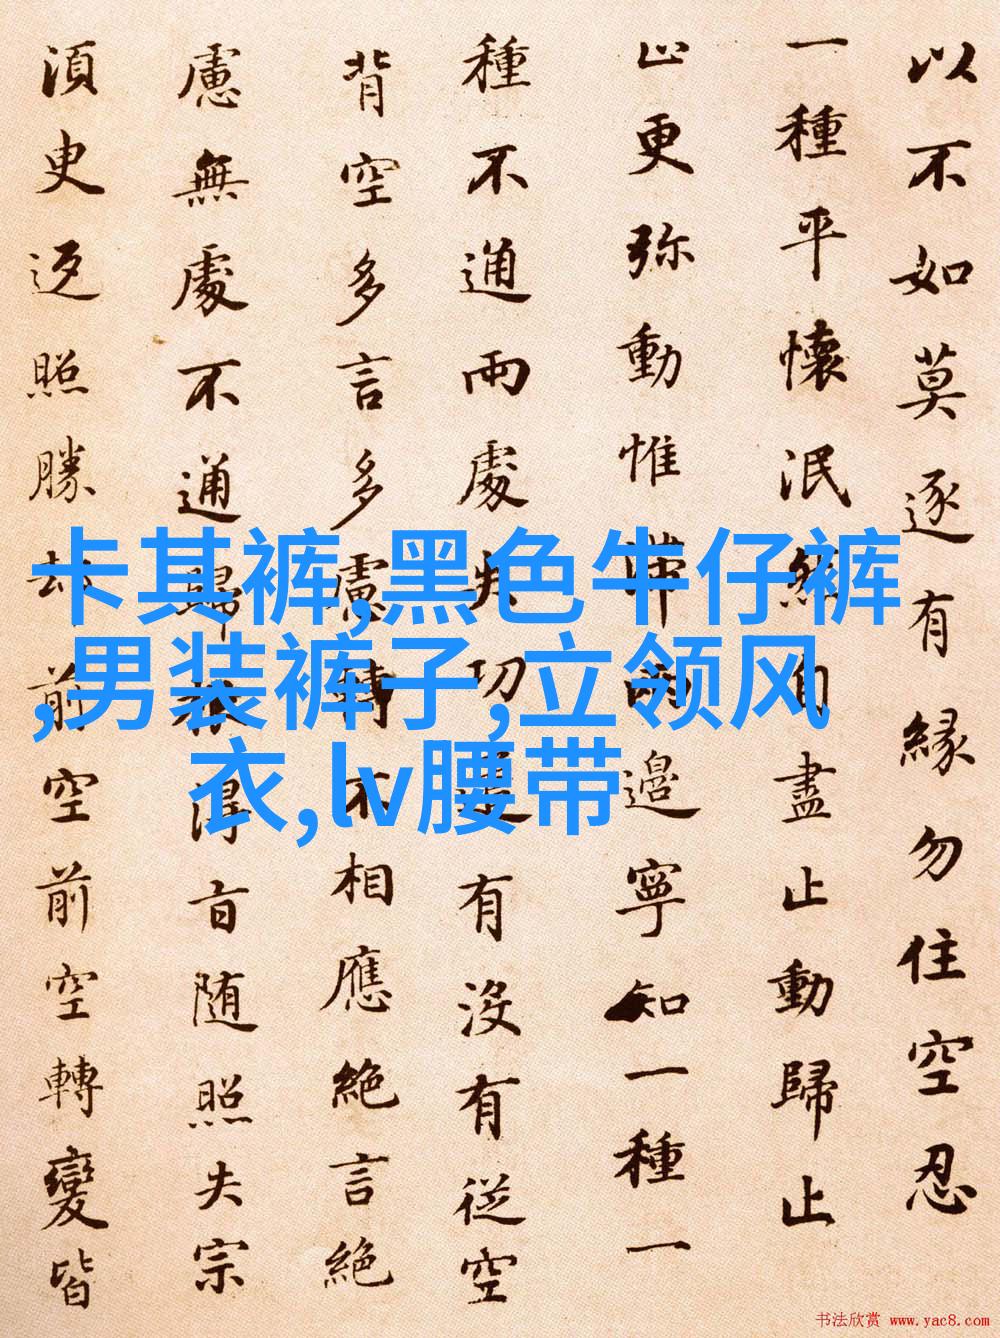 以不如莫逐有緣勿住空忍
一種平懷泯自盡止動歸止
止更弥動惟滞兩邊寧知一種一
種不通兩處失功遣有没有従空
背空多言多慮轉不相應絕言絕
慮無處不通歸根得旨随照失宗
須臾返照勝却前空前空轉變皆
卡其裤,黑色牛仔裤
,男装裤子,立领风
衣,lv腰带
书法欣赏 www.yac8.com